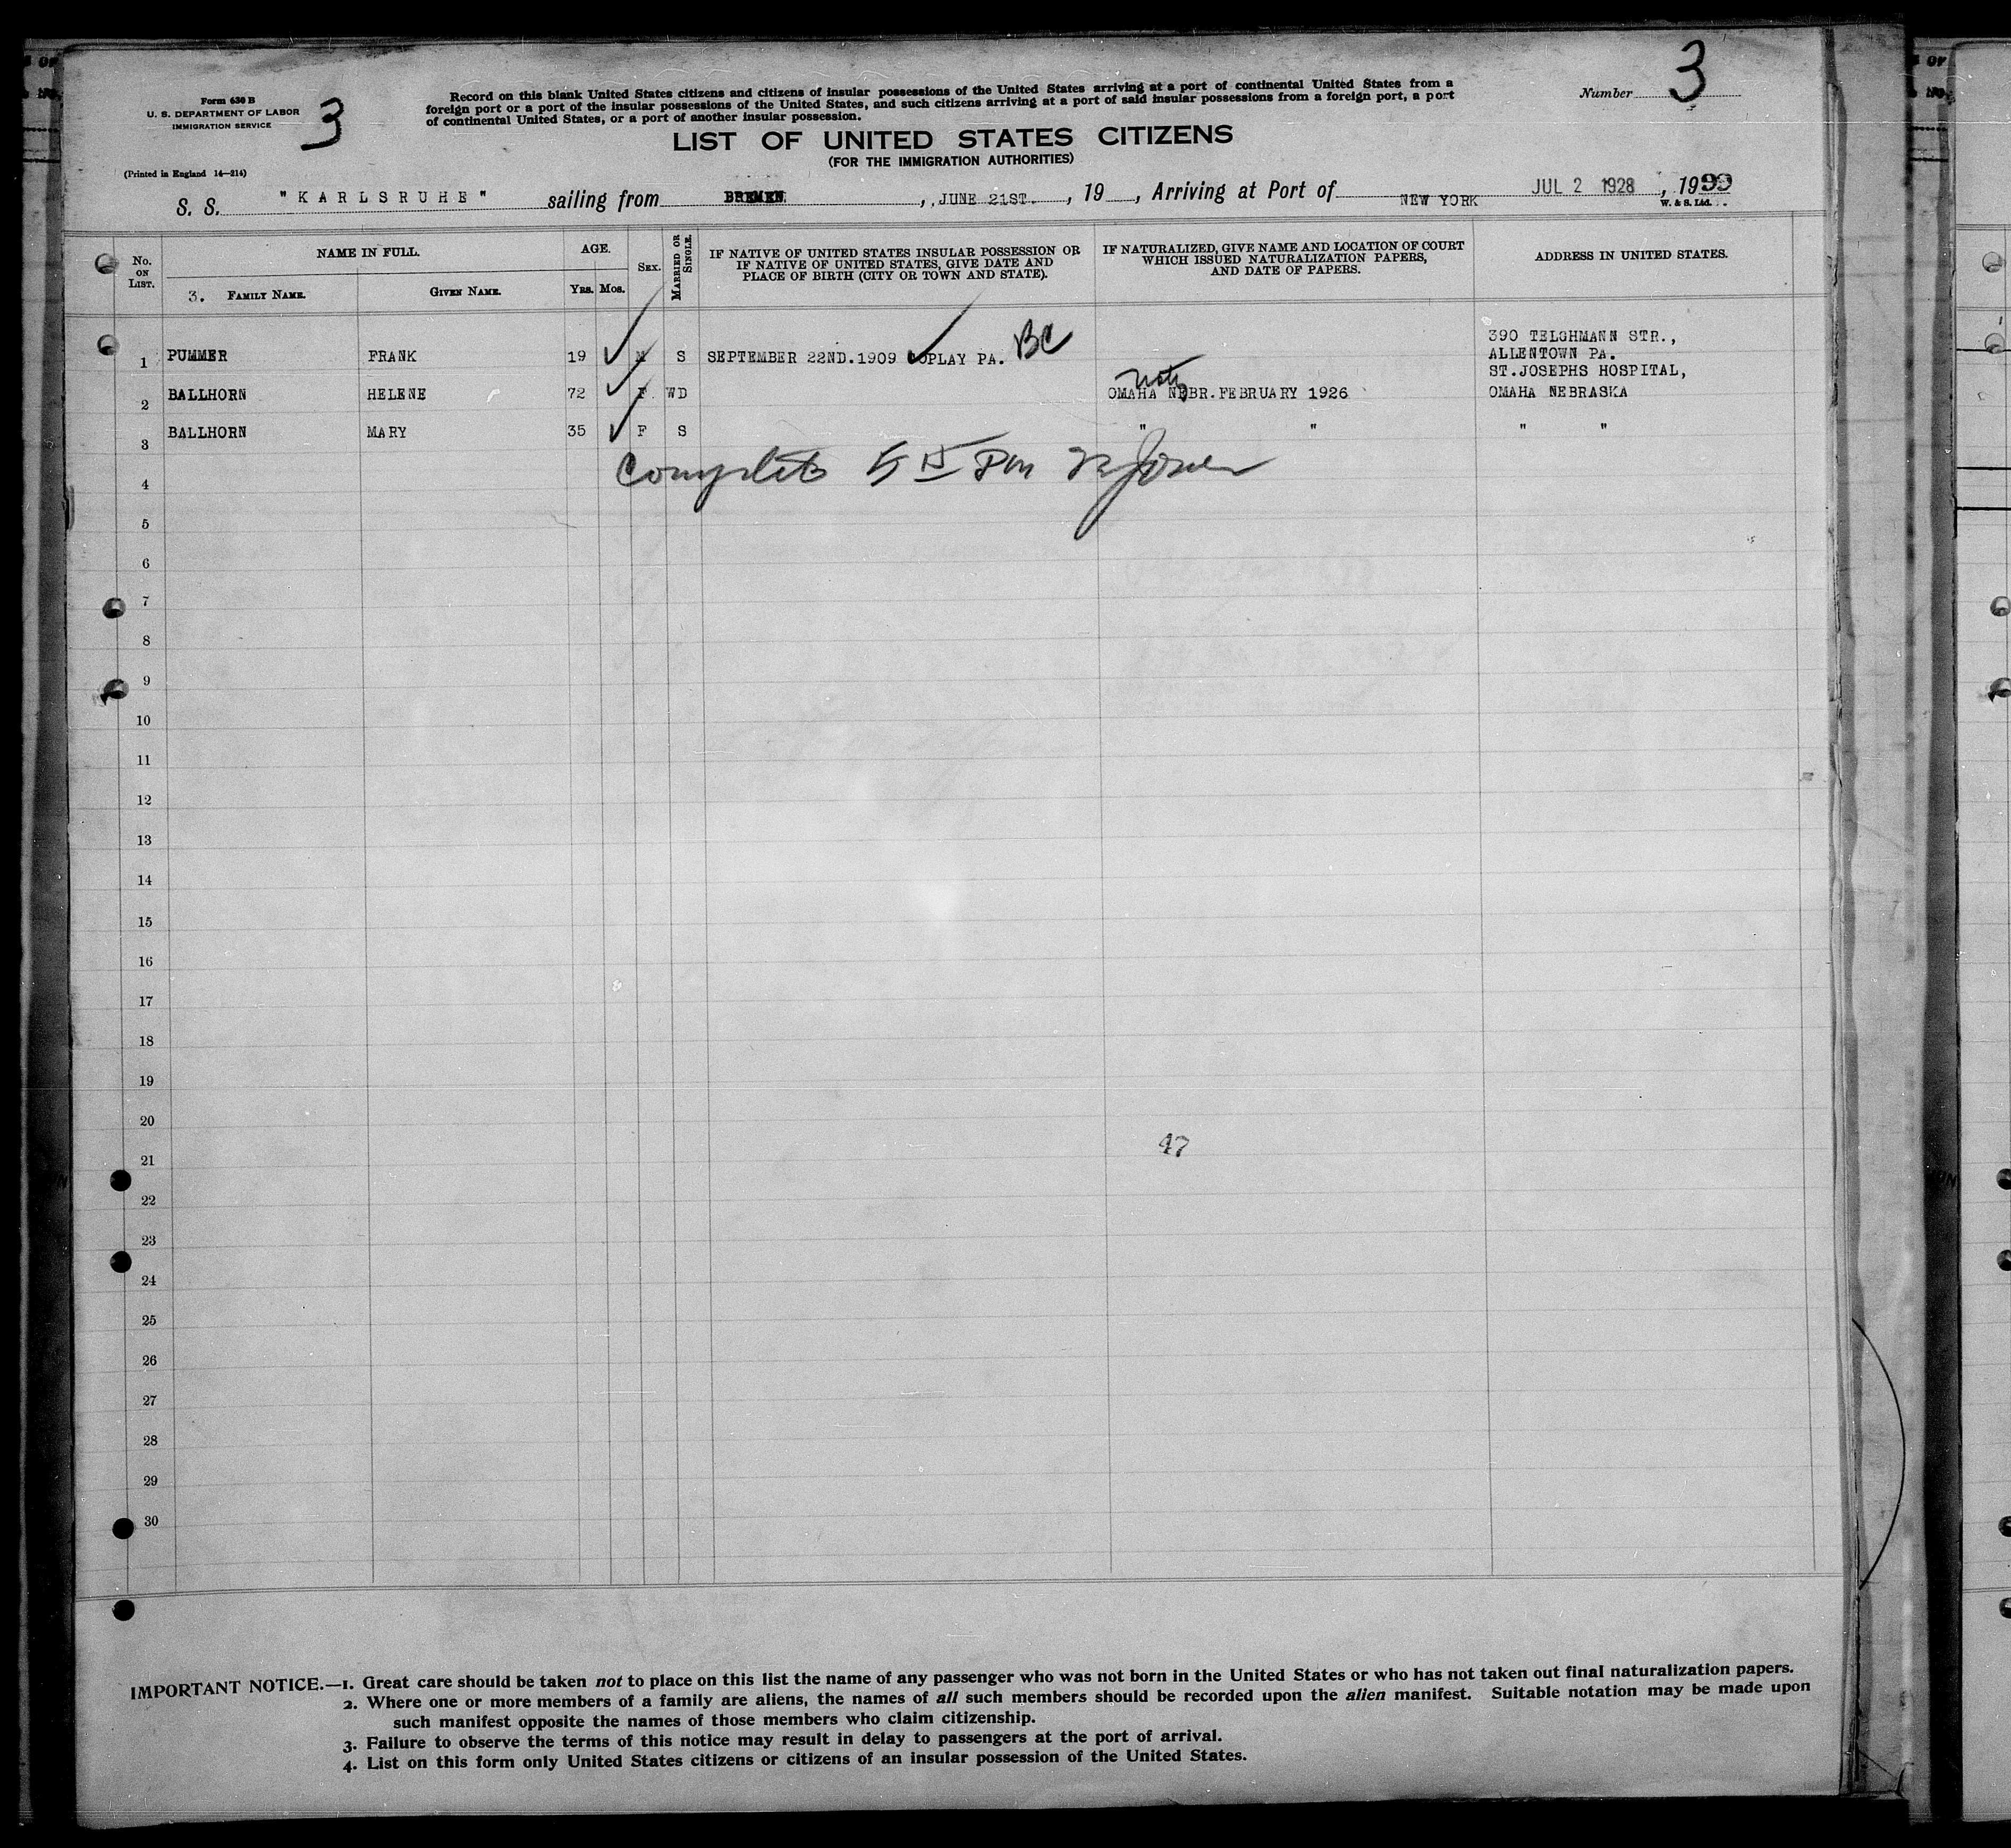 3
Form 630 B
U. S. DEPARTMENT OF LABOR
IMMIGRATION SERVICE
3
Record on this blank United States citizens and citizens of insular possessions of the United States arriving at a port of continental United States from a
foreign port or a port of the insular possessions of the United States, and such citizens arriving at a port of said insular possessions from a foreign port, a port
of continental United States, or a port of another insular possession.
Number
LIST OF UNITED STATES CITIZENS
(FOR THE IMMIGRATION AUTHORITIES)
(Printed in England 14—214)
S. S. "KARLSRUHE" sailing from BREMEN. , JUNE 21ST. , 19 , Arriving at Port of NEW YORK JUL 2 1928 , 19
W. & S. Ltd.
No. ON LIST.
NAME IN FULL.
3. FAMILY NAME.
GIVEN NAME.
AGE.
Yrs. Mos.
SEX.
MARRIED OR SINGLE.
IF NATIVE OF UNITED STATES INSULAR POSSESSION OR
IF NATIVE OF UNITED STATES, GIVE DATE AND
PLACE OF BIRTH (CITY OR TOWN AND STATE).
IF NATURALIZED, GIVE NAME AND LOCATION OF COURT
WHICH ISSUED NATURALIZATION PAPERS,
AND DATE OF PAPERS.
ADDRESS IN UNITED STATES.
390 TELGHMANN STR.,
1 PUMMER FRANK 19 M S SEPTEMBER 22ND.1909 COPLAY PA. BC ALLENTOWN PA.
ST.JOSEPHS HOSPITAL,
2 BALLHORN HELENE 72 F. WD OMAHA NEBR.FEBRUARY 1926 OMAHA NEBRASKA
3 BALLHORN MARY 35 F S " " " "
4 Complete
5
6
7
8
9
10
11
12
13
14
15
16
17
18
19
20
47
21
22
23
24
25
26
27
28
29
30
IMPORTANT NOTICE.—1. Great care should be taken not to place on this list the name of any passenger who was not born in the United States or who has not taken out final naturalization papers.
2. Where one or more members of a family are aliens, the names of all such members should be recorded upon the alien manifest. Suitable notation may be made upon
such manifest opposite the names of those members who claim citizenship.
3. Failure to observe the terms of this notice may result in delay to passengers at the port of arrival.
4. List on this form only United States citizens or citizens of an insular possession of the United States.